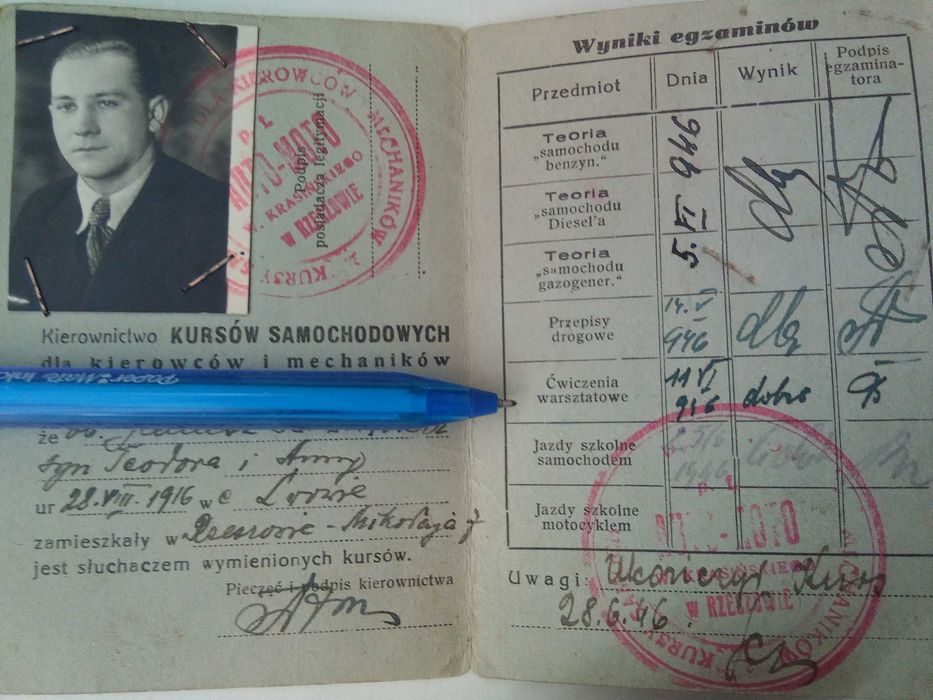 Podpis
posiadacza legitymacji
DLA KIEROWCÓW I MECHANIKÓW
KURSY
AUTO-MOTO
KRASIŃSKIEGO
W RZESZOWIE
Kierownictwo KURSÓW SAMOCHODOWYCH
dla kierowców i mechaników
Paper Mate Ink
że ob.
syn Teodora i Anny
ur 28.VIII.1916 w e Lwowie
zamieszkały w Rzeszowie - Mikołaja 7
jest słuchaczem wymienionych kursów.
Pieczęć i podpis kierownictwa
Wyniki egzaminów
Przedmiot Dnia Wynik Podpis
egzamina-
tora
Teoria
„samochodu
benzyn.”
Teoria
„samochodu
Diesel'a
Teoria
„samochodu
gazogener.”
5.VI 946 db
Przepisy
drogowe
14.VI
946 db
Ćwiczenia
warsztatowe
11 VI
946 dobre
Jazdy szkolne
samochodem
1946
Jazdy szkolne
motocyklem
Uwagi: Ukończył Kurs
28.6.46.
AUTO-MOTO
KRASIŃSKIEGO
W RZESZOWIE
KURSY
MECHANIKÓW